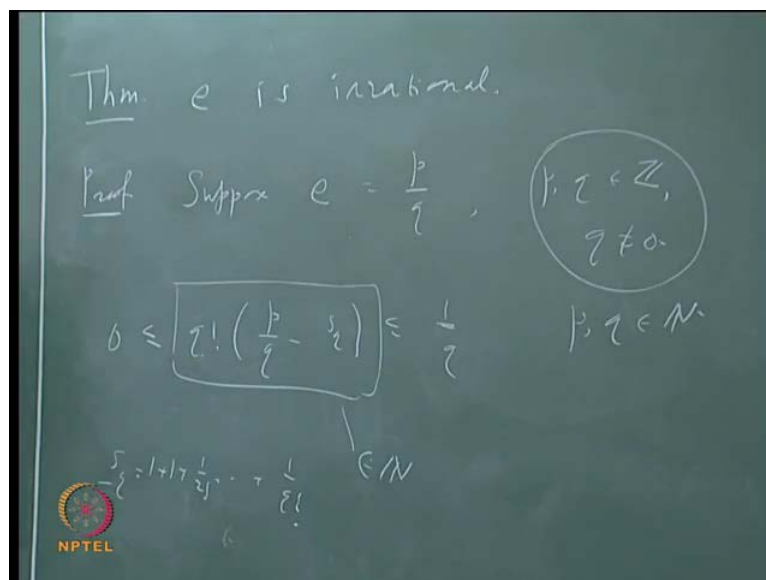 Thm. e is irrational.
Proof Suppose e = p/q, p, q ∈ ℤ, q ≠ 0.
p, q ∈ ℕ.
0 ≤ q! (p/q - s_q) ≤ 1/q
∈ ℕ
s_q = 1+1+ 1/2! ... + 1/q!
NPTEL